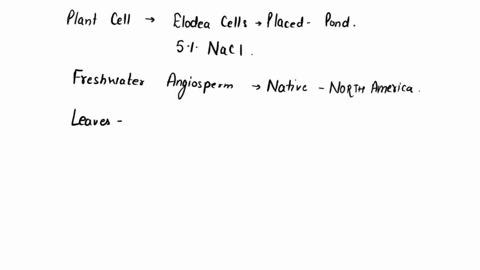 Plant Cell → Elodea Cells → Placed - Pond.
5·1· NaCl.
Freshwater Angiosperm → Native - NORTH America.
Leaves -